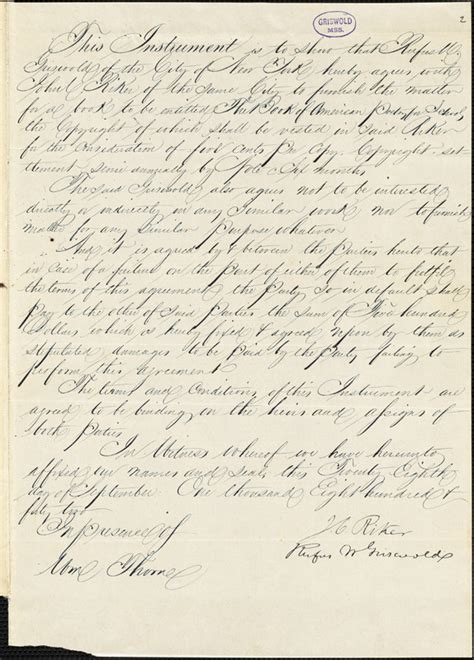 2
GRISWOLD
MSS.
This Instrument is to show that Rufus W.
Griswold of the City of New York hereby agrees with
John C Riker of the same City to furnish the matter
for a book to be entitled The Book of American Poetry for Schools,
the Copyright of which shall be vested in Said Riker
for the Consideration of five cents per Copy. Copyright set-
tlement semi annually by Note six months
The Said Griswold also agrees not to be interested
directly or indirectly in any similar work nor to furnish
matter for any similar purpose whatever
And it is agreed by & between the Parties hereto that
in case of a failure on the part of either of them to fulfil
the terms of this agreement the Party so in default shall
pay to the other of Said Parties the sum of Two hundred
Dollars which is hereby fixed & agreed upon by them as
stipulated damages to be paid by the Party failing to
perform this agreement
The terms and Conditions of this Instrument are
agreed to be binding on the heirs and assigns of
both Parties
In Witness whereof we have hereunto
affixed our names and Seals this Twenty Eighth
day of September One thousand Eight hundred &
fifty two
In presence of
J C Riker
Rufus W Griswold
Wm Thorne